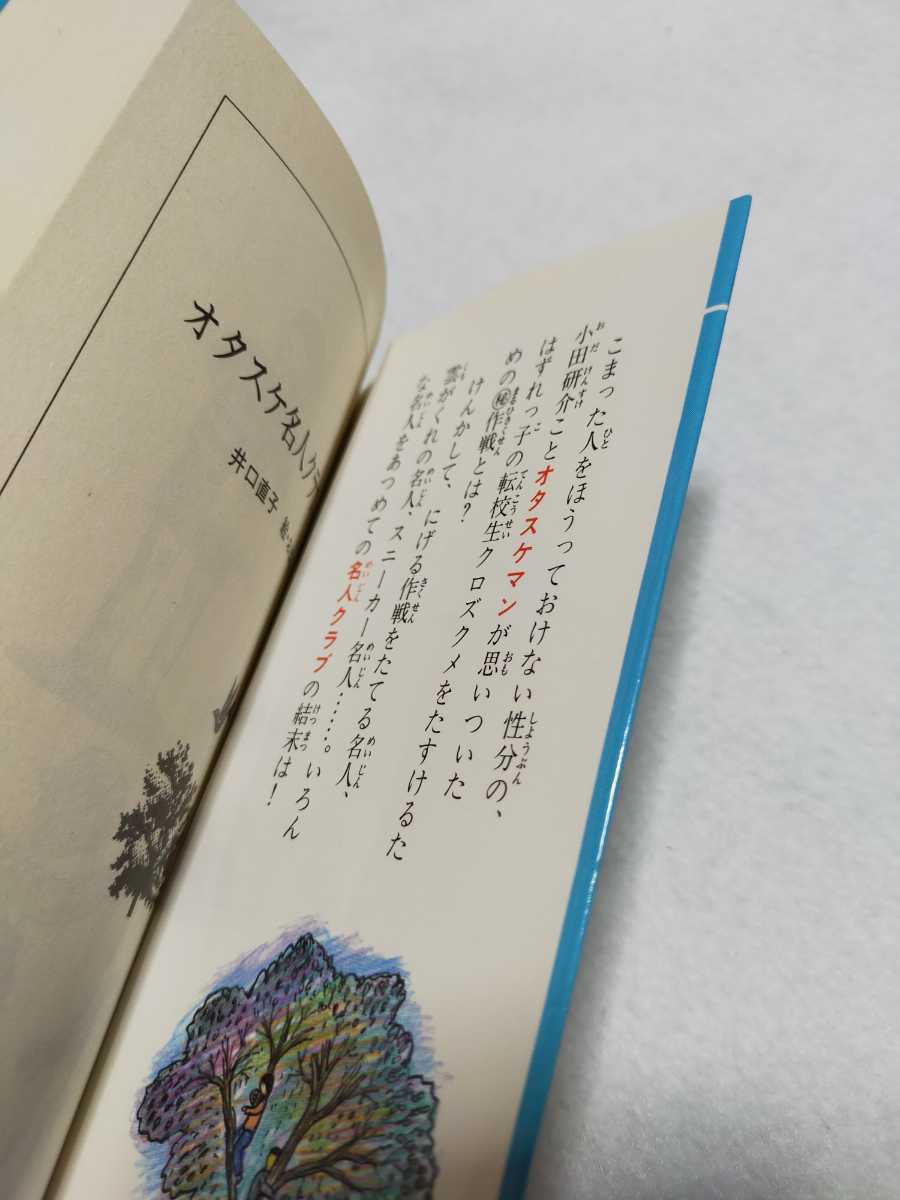 こまった人をほうっておけない性分の、
小田研介ことオタスケマンが思いついた
はずれっ子の転校生クロズクメをたすけるた
めの㊙作戦とは?
けんかして、にげる作戦をたてる名人、
雲がくれの名人、スニーカー名人……。いろん
な名人をあつめての名人クラブの結末は!
オタスケ名人クラ
井口直子